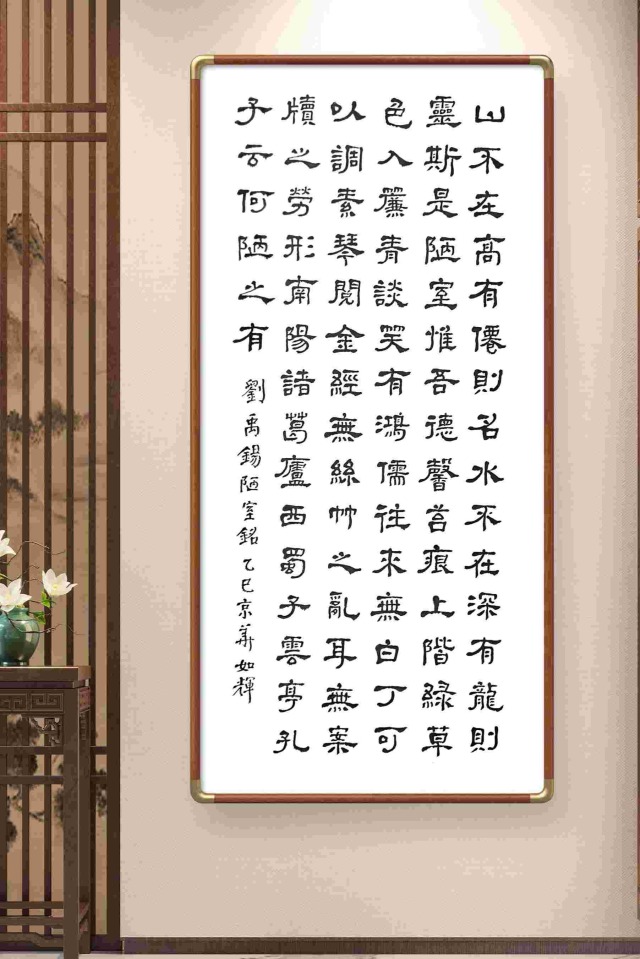 山不在高有僊則名水不在深有龍則
靈斯是陋室惟吾德馨苔痕上階緑草
色入簾青談笑有鴻儒往來無白丁可
以調素琴閱金經無絲竹之亂耳無案
牘之勞形南陽諸葛廬西蜀子雲亭孔
子云何陋之有
劉禹錫陋室銘乙巳京華如輝